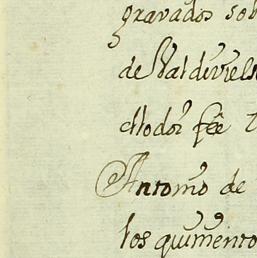 gravados sob
de Valdeviels
todos fee
Antonio de
los quiniento